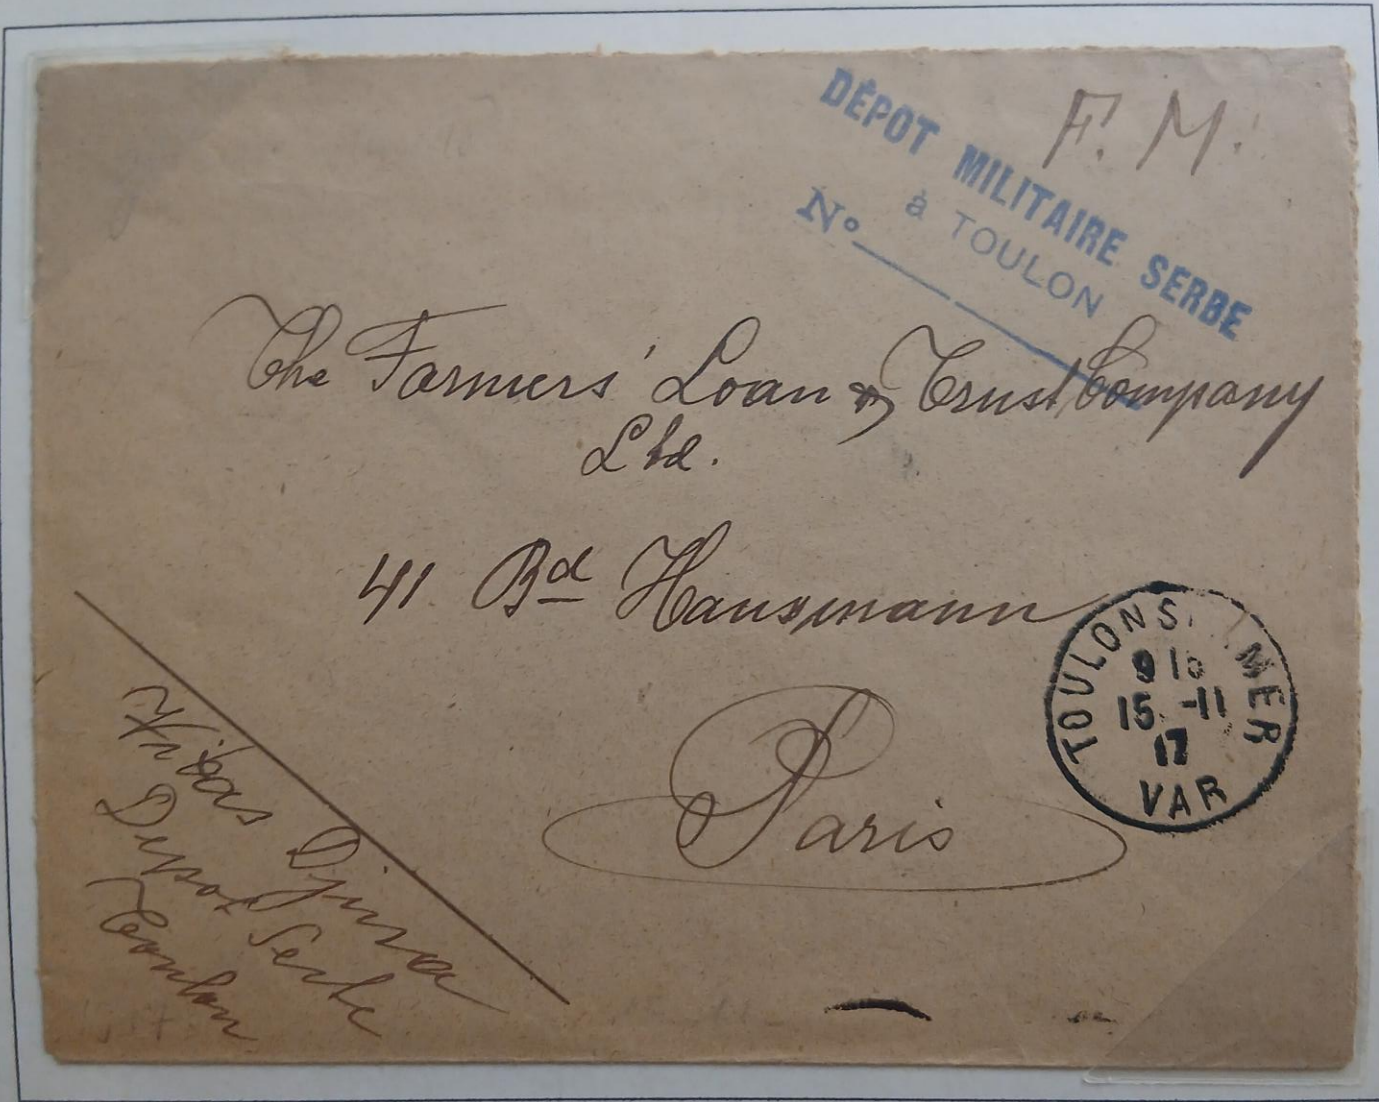 F. M.
DÉPOT MILITAIRE SERBE
à TOULON
No
The Farmers' Loan & Trust Company
Ltd.
41 Bd Hausmann
Paris
TOULON S. MER
15 -11
17
VAR
Djura
Depot Serbe
Toulon